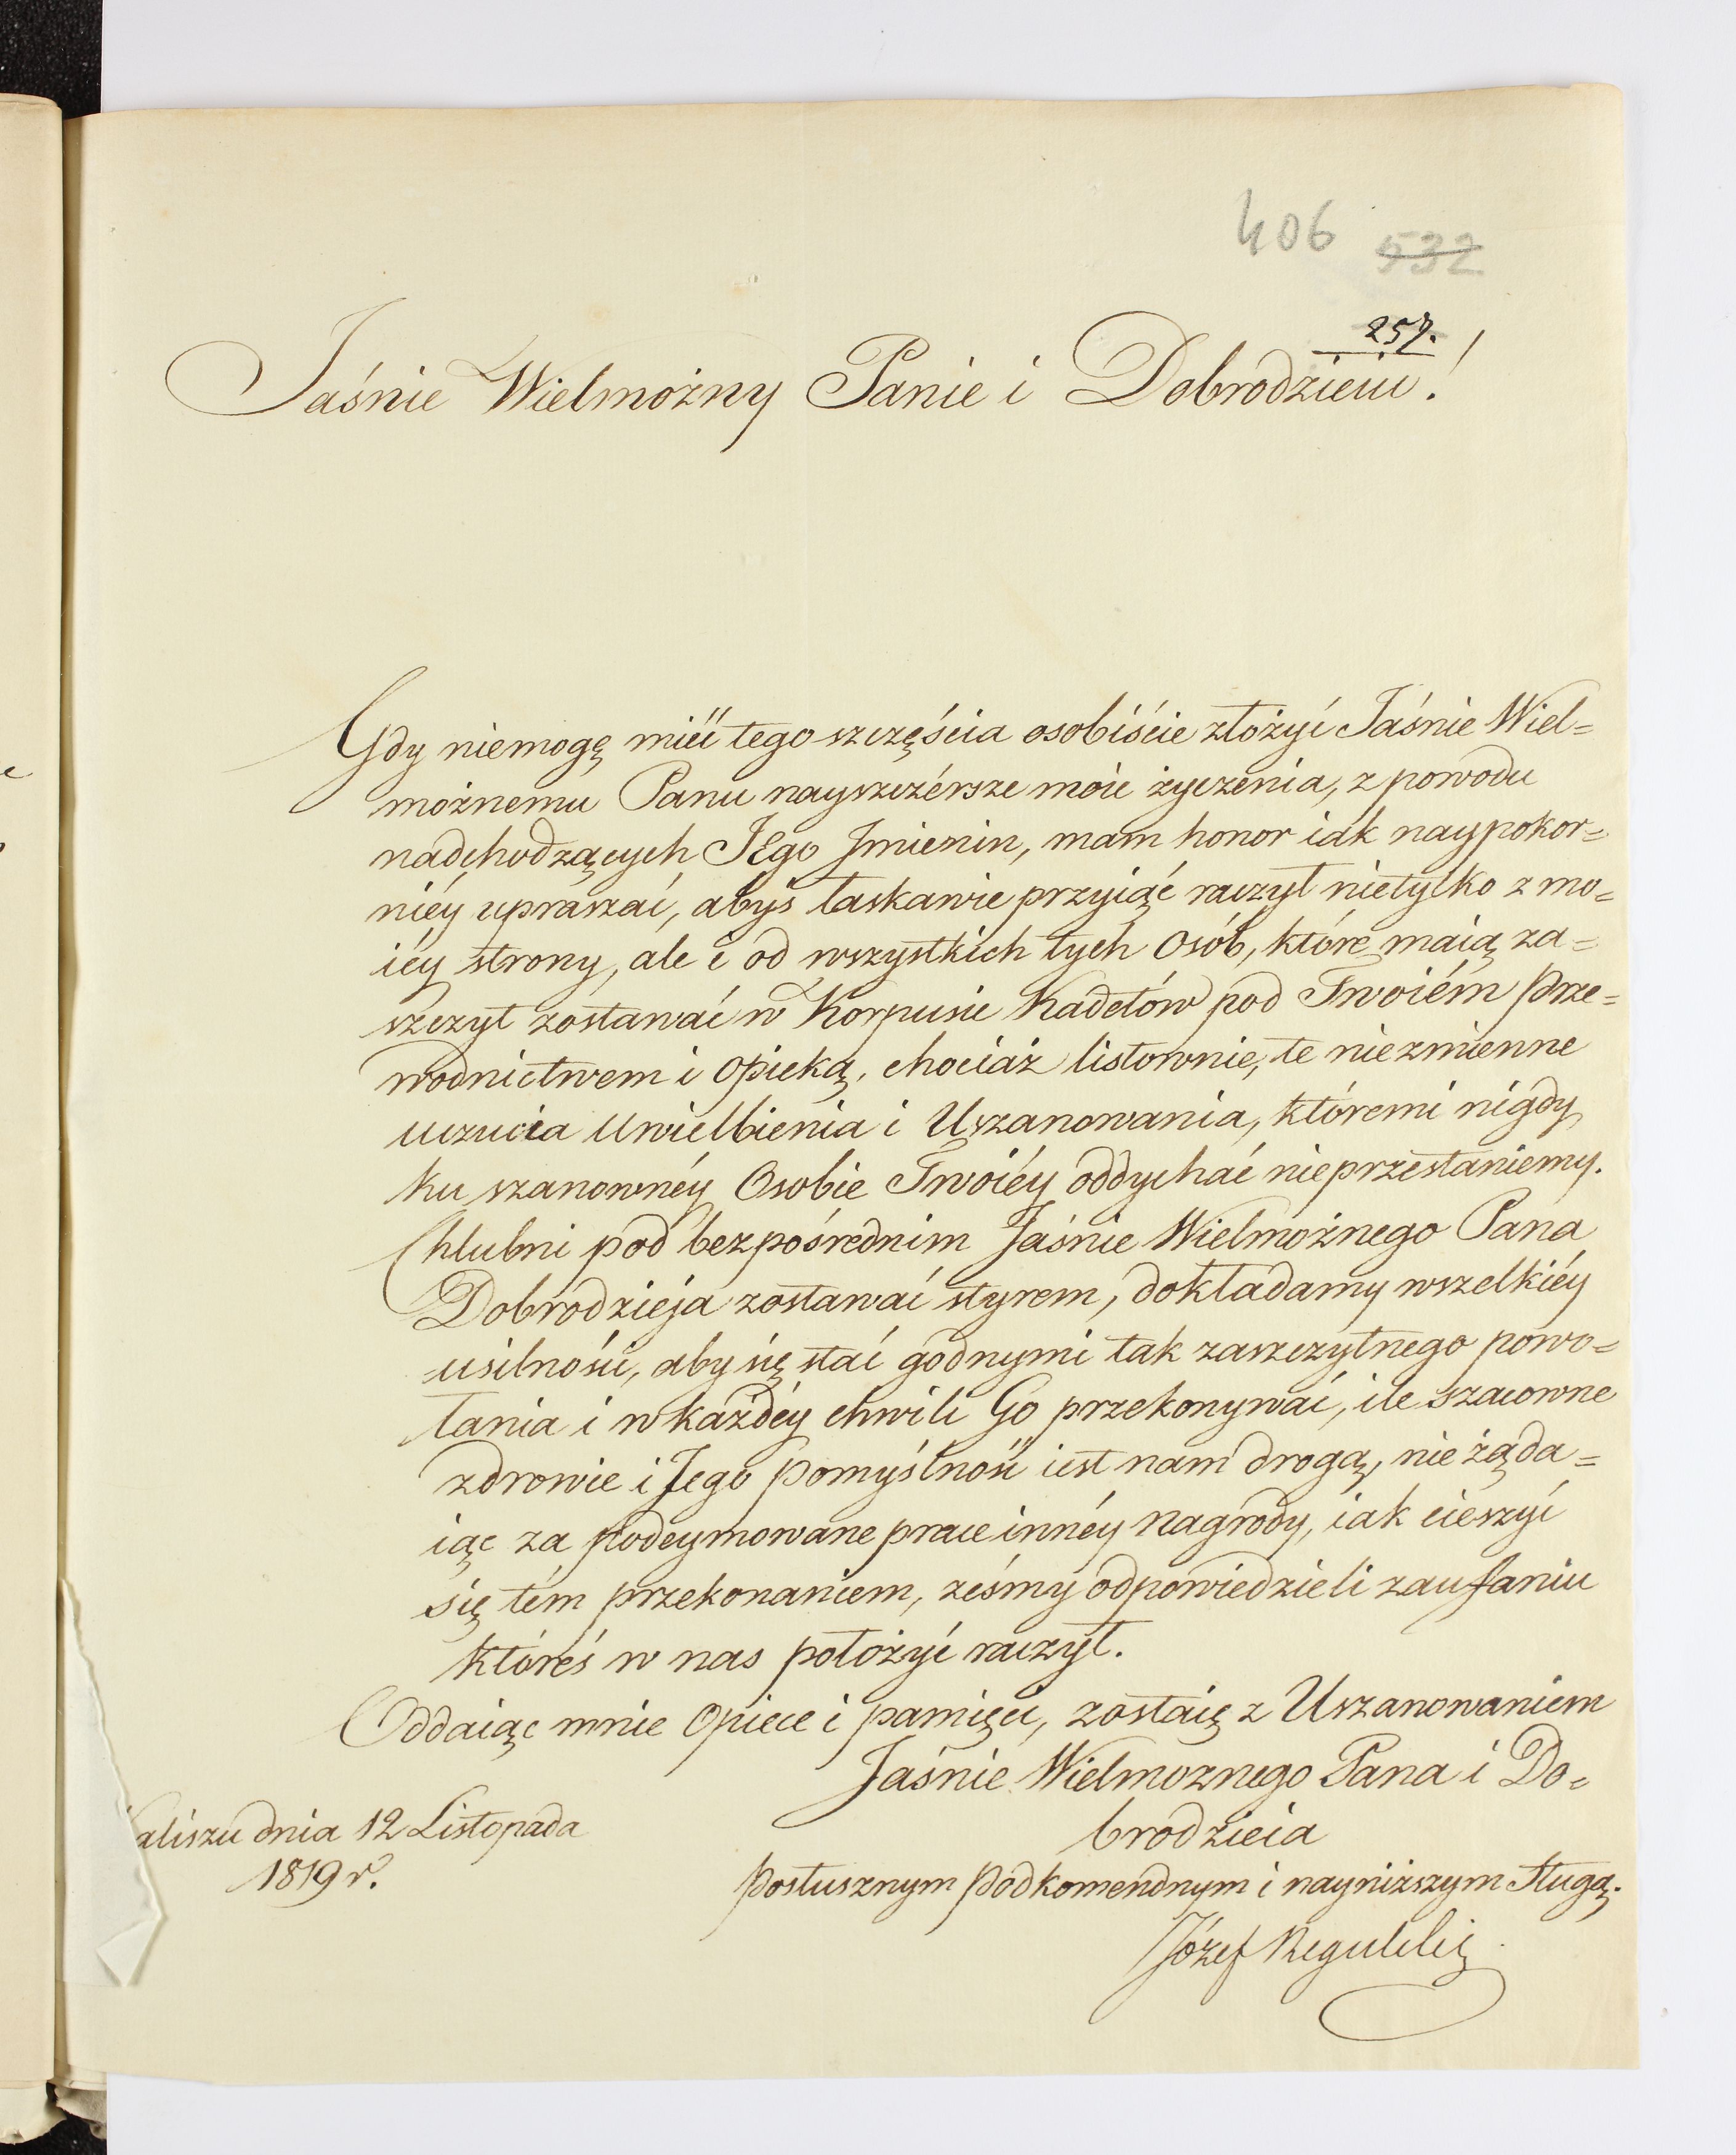 406 532
257.
Jaśnie Wielmożny Panie i Dobrodzieiu!
Gdy niemogę mieć tego szczęścia osobiście złożyć Jaśnie Wiel=
możnemu Panu nayszczérsze móie życzenia, z powodu
nadchodzących JEgo Jmienin, mam honor iak naypokor=
niéy upraszać, abyś łaskawie przyiąć raczył nietylko z mo=
iéy strony, ale i od wszystkich tych Osób, które maią za=
szczyt zostawać w Korpusie Kadetów pod Twoiém prze=
wodnictwem i opieką, chociaż listownie, te niezmienne
uczucia Uwielbienia i Uszanowania, któremi nigdy
ku szanownéy Osobie Twoiéy oddychać nieprzestaniemy.
Chlubni pod bezpośrednim Jaśnie Wielmożnego Pana
Dobrodzieja zostawać styrem, dokładamy wszelkiéy
usilności, aby się stać godnymi tak zaszczytnego powo=
łania i w każdéy chwili Go przekonywać, ile szacowne
zdrowie i Jego pomyślność iest nam drogą, nie żąda=
iąc za podeymowane prace innéy nagrody, iak cieszyć
się tém przekonaniem, żeśmy odpowiedzieli zaufaniu
któreś w nas położyć raczył.
Oddaiąc mnie opiece i pamięci, zostaię z Uszanowaniem
Jaśnie Wielmożnego Pana i Do=
brodzieia
aliszu dnia 12 Listopada
1819 r.
posłusznym podkomendnym i nayniższym sługą.
Józef